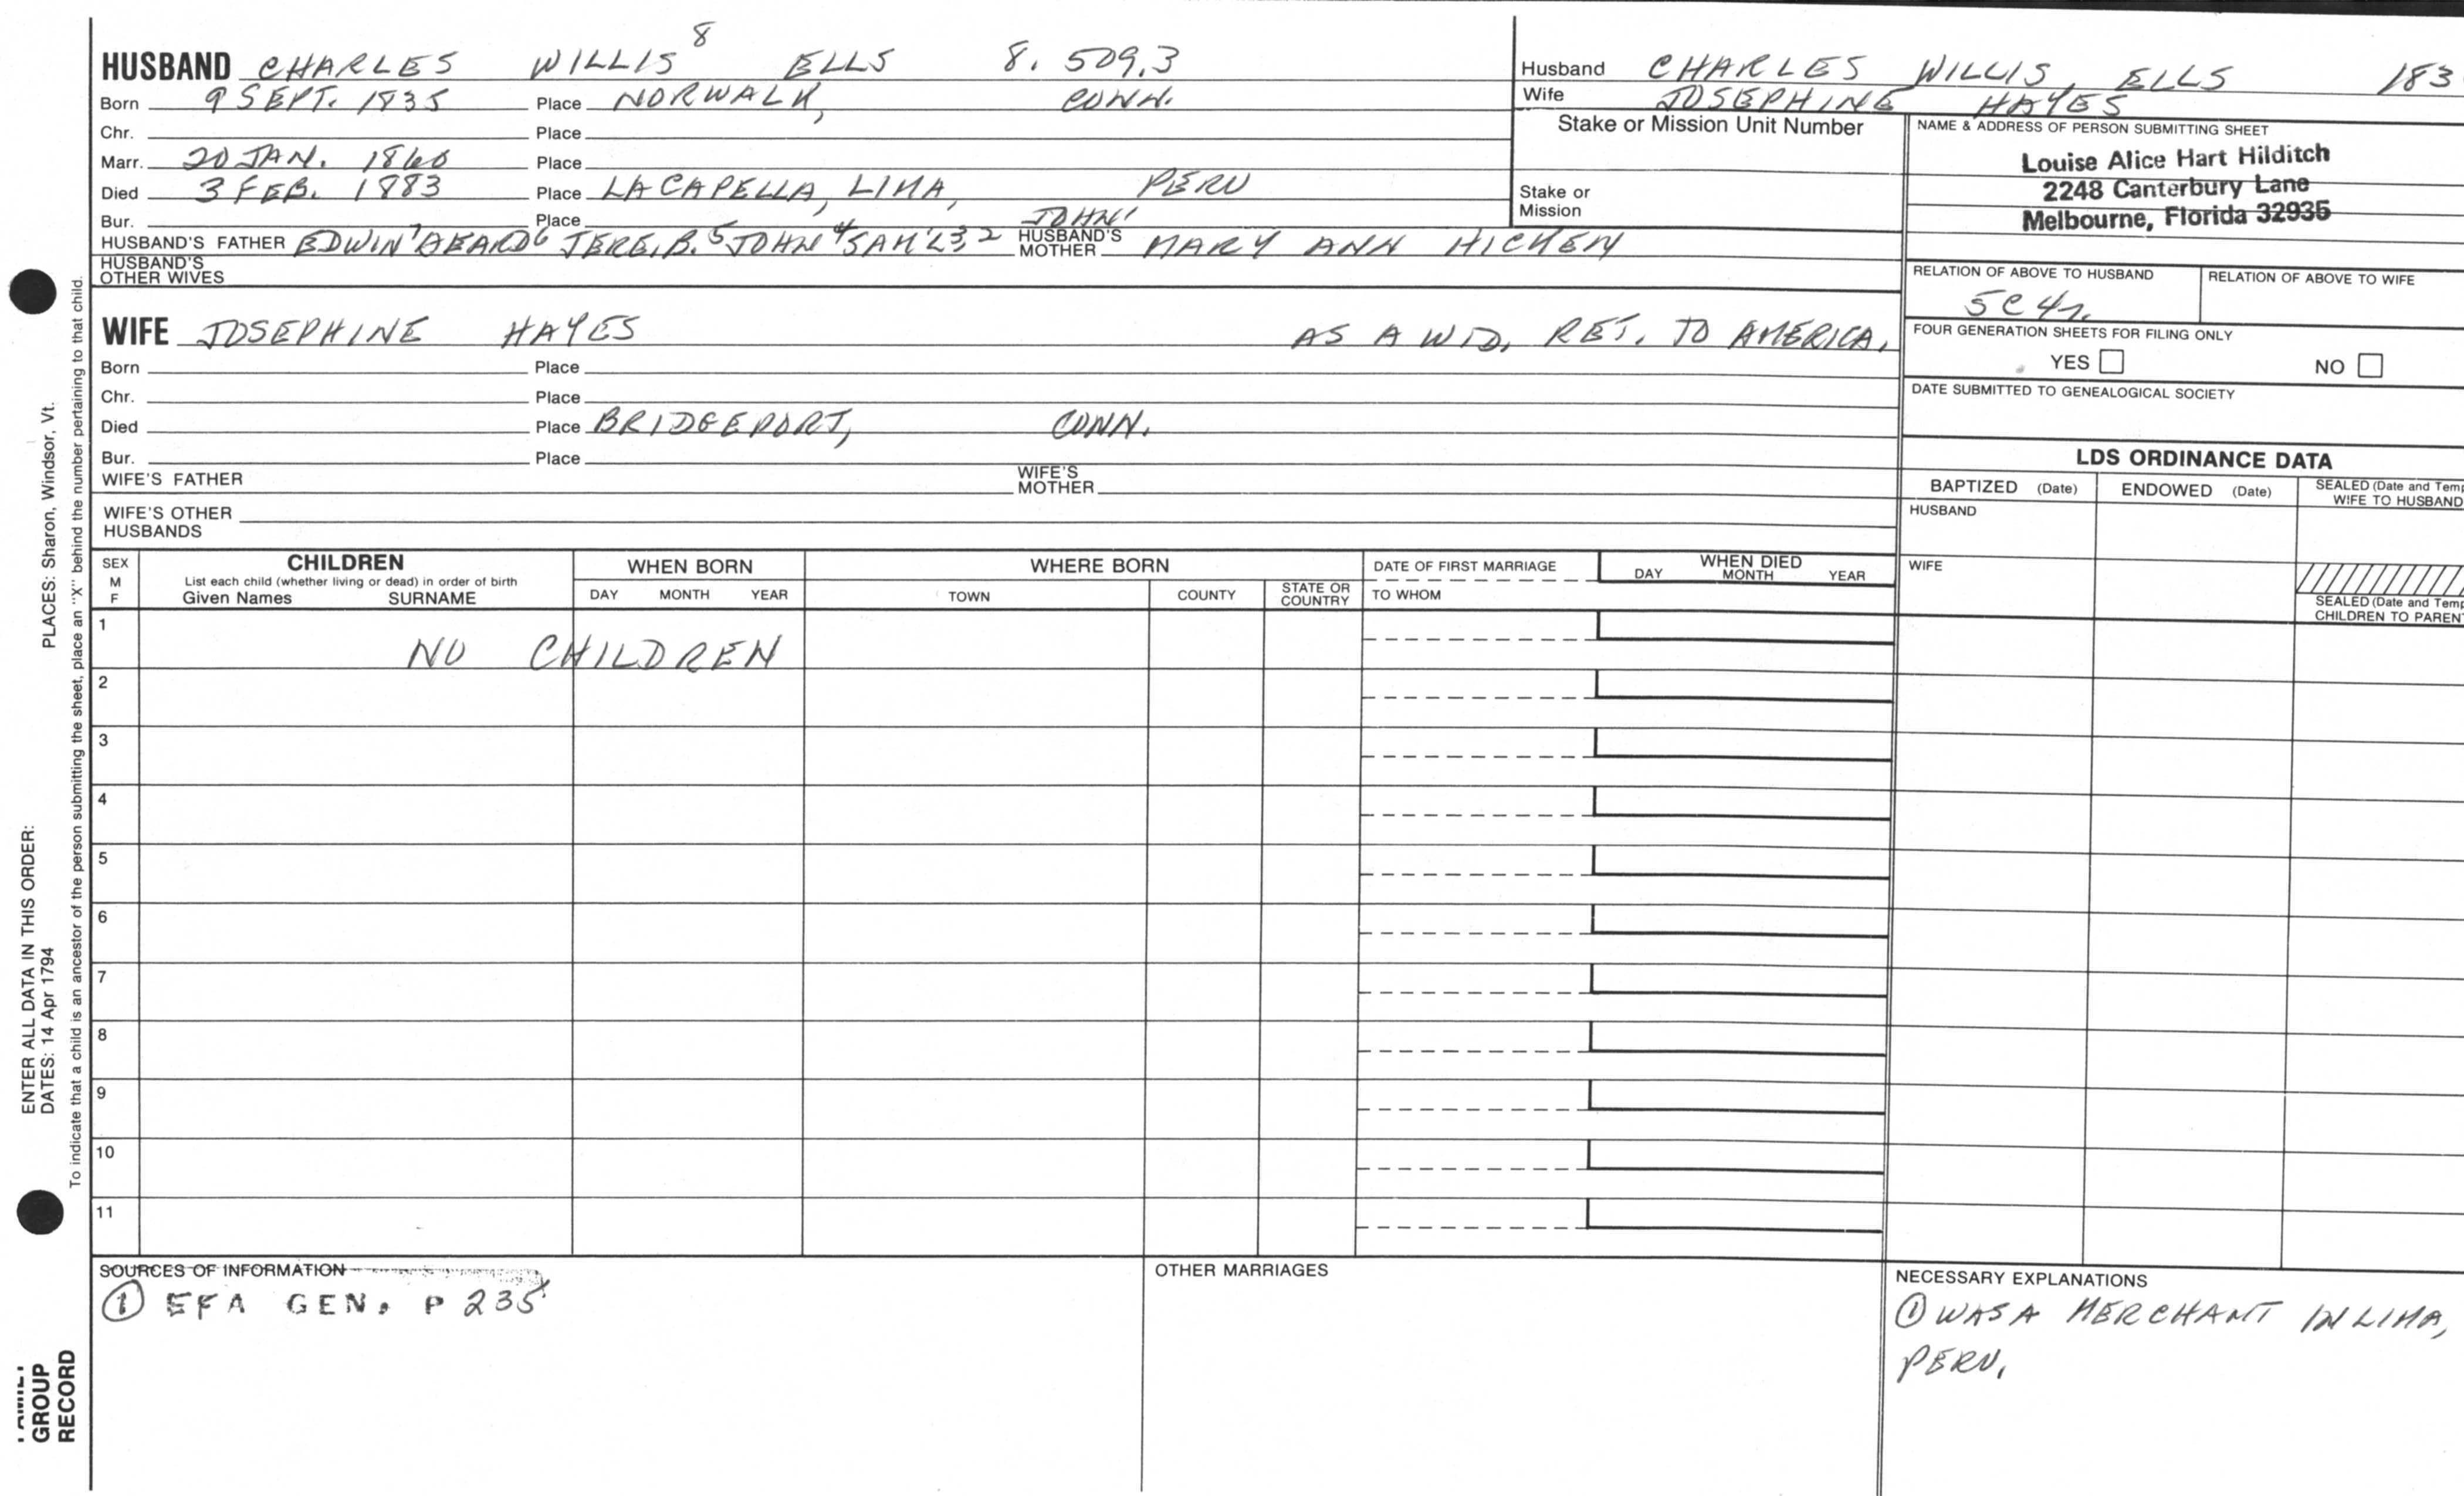 HUSBAND CHARLES WILLIS⁸ ELLS 8. 509.3
Born 9 SEPT. 1835 Place NORWALK, CONN.
Chr. Place
Marr. 20 JAN. 1860 Place
Died 3 FEB. 1883 Place LA CAPELLA, LIMA, PERU
Bur. Place
HUSBAND'S FATHER EDWIN⁷ BEARD⁶ JERE. B.⁵ JOHN⁴ SAM'L³,² JOHN¹ HUSBAND'S MOTHER MARY ANN HICKEN
HUSBAND'S OTHER WIVES
WIFE JOSEPHINE HAYES AS A WID. RET. TO AMERICA.
Born Place
Chr. Place
Died Place BRIDGEPORT, CONN.
Bur. Place
WIFE'S FATHER WIFE'S MOTHER
WIFE'S OTHER HUSBANDS
Husband CHARLES WILLIS ELLS 183
Wife JOSEPHINE HAYES
Stake or Mission Unit Number
Stake or Mission
NAME & ADDRESS OF PERSON SUBMITTING SHEET
Louise Alice Hart Hilditch
2248 Canterbury Lane
Melbourne, Florida 32935
RELATION OF ABOVE TO HUSBAND RELATION OF ABOVE TO WIFE
5C4r.
FOUR GENERATION SHEETS FOR FILING ONLY
YES NO
DATE SUBMITTED TO GENEALOGICAL SOCIETY
LDS ORDINANCE DATA
BAPTIZED (Date) ENDOWED (Date) SEALED (Date and Temp
WIFE TO HUSBAND
HUSBAND
WIFE
SEALED (Date and Temp
CHILDREN TO PARENT
SEX M F CHILDREN WHEN BORN WHERE BORN DATE OF FIRST MARRIAGE WHEN DIED
List each child (whether living or dead) in order of birth
Given Names SURNAME DAY MONTH YEAR TOWN COUNTY STATE OR COUNTRY TO WHOM DAY MONTH YEAR
1 NO CHILDREN
2
3
4
5
6
7
8
9
10
11
SOURCES OF INFORMATION
① EFA GEN. P 235
OTHER MARRIAGES
NECESSARY EXPLANATIONS
① WAS A MERCHANT IN LIMA,
PERU.
PLACES: Sharon, Windsor, Vt.
ENTER ALL DATA IN THIS ORDER:
DATES: 14 Apr 1794
To indicate that a child is an ancestor of the person submitting the sheet, place an "X" behind the number pertaining to that child.
FAMILY
GROUP
RECORD